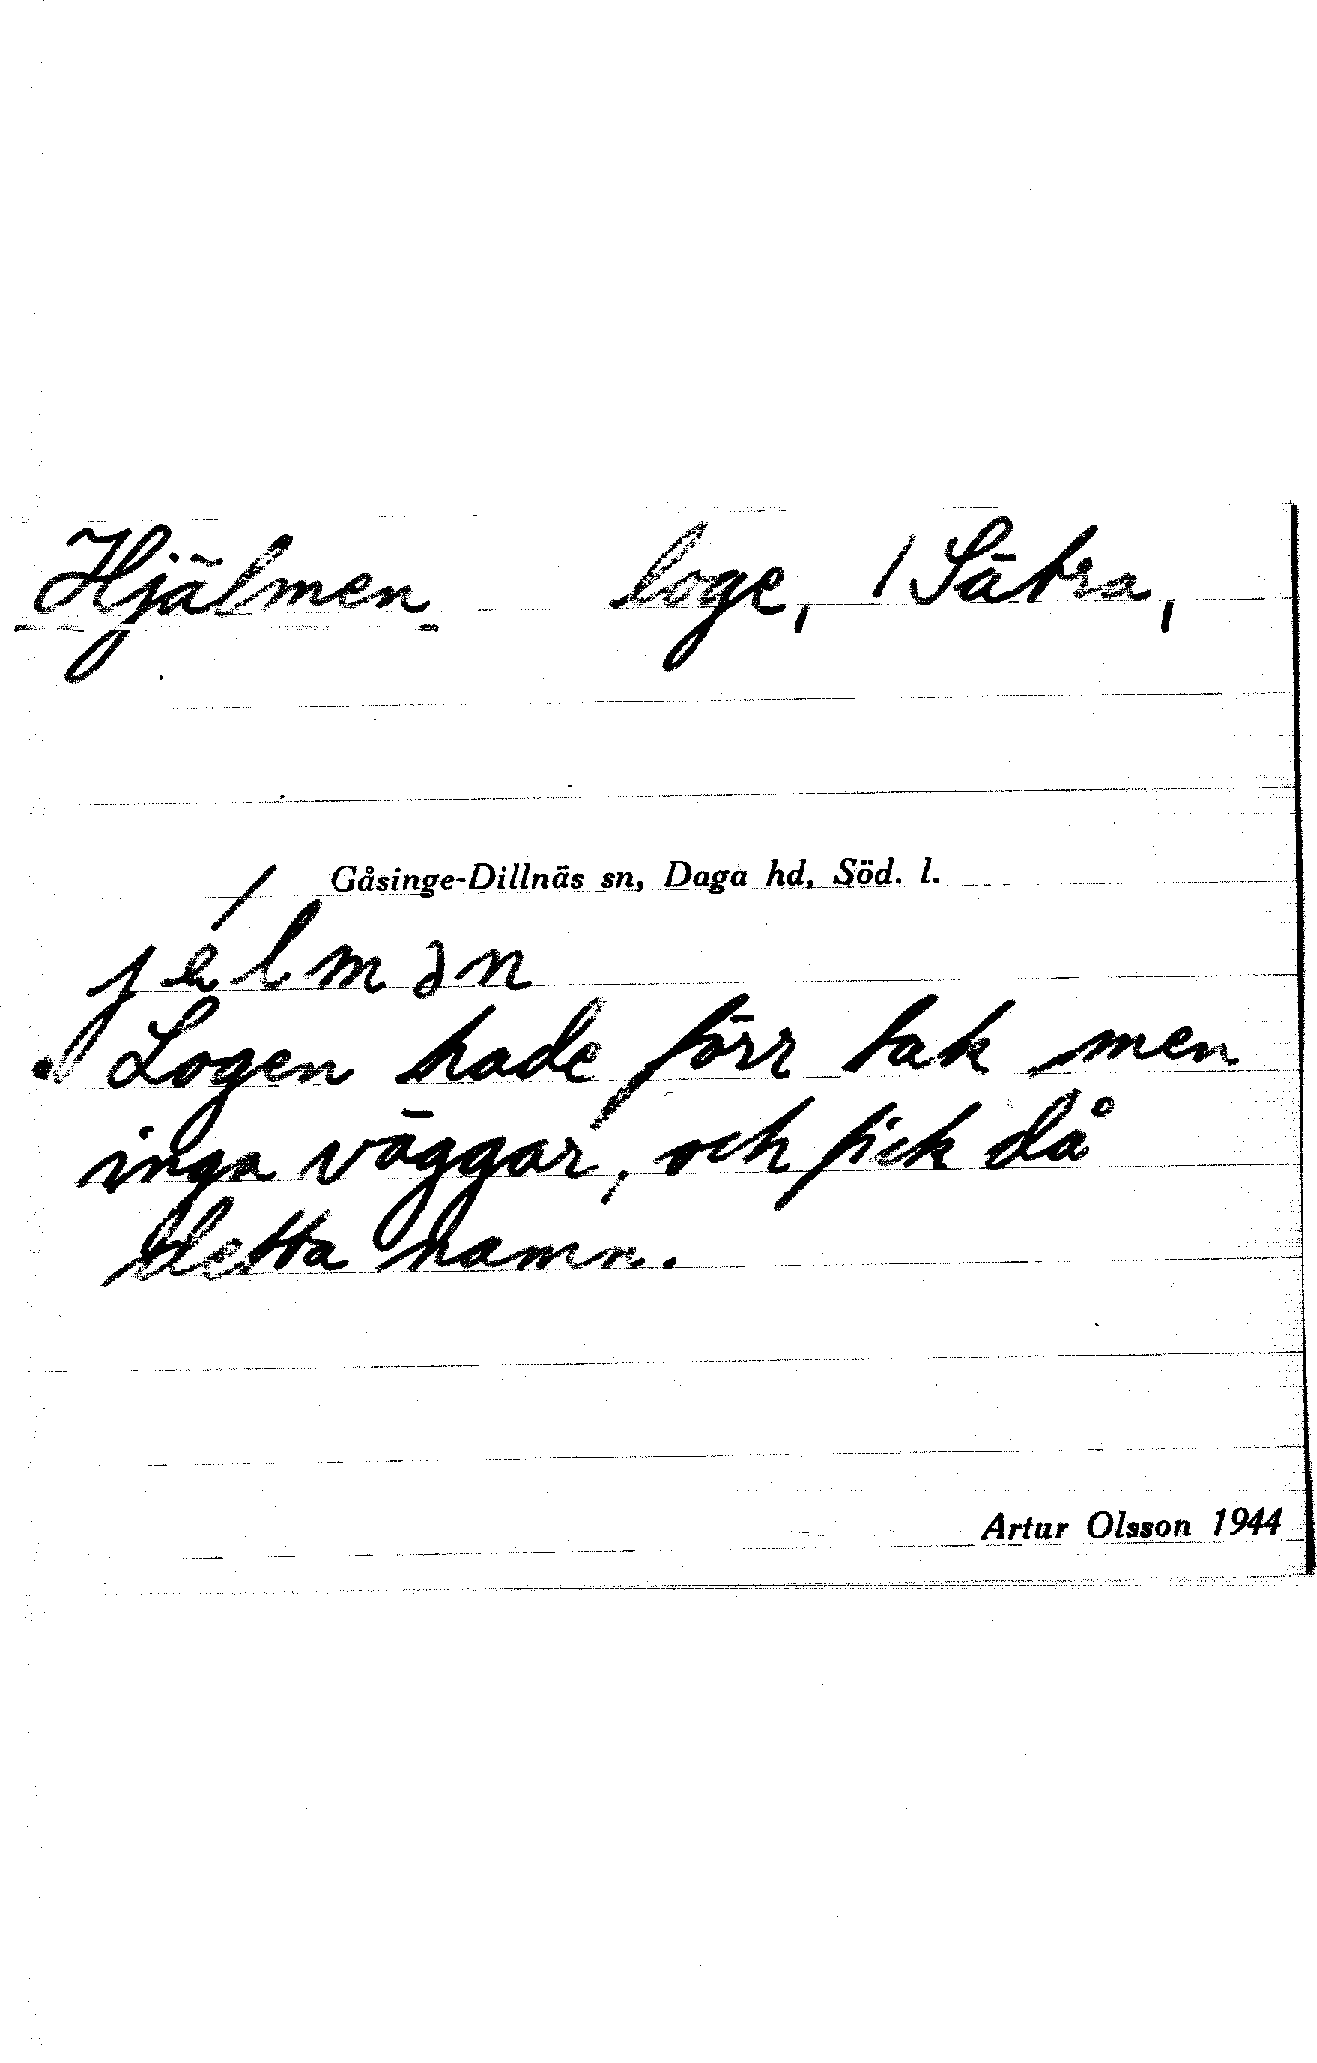 Hjälmen loge, 1 Sätra,
Gåsinge-Dillnäs sn, Daga hd, Söd. l.
jélmən
Logen hade förr tak men
inga väggar, och fick då
detta namn.
Artur Olsson 1944